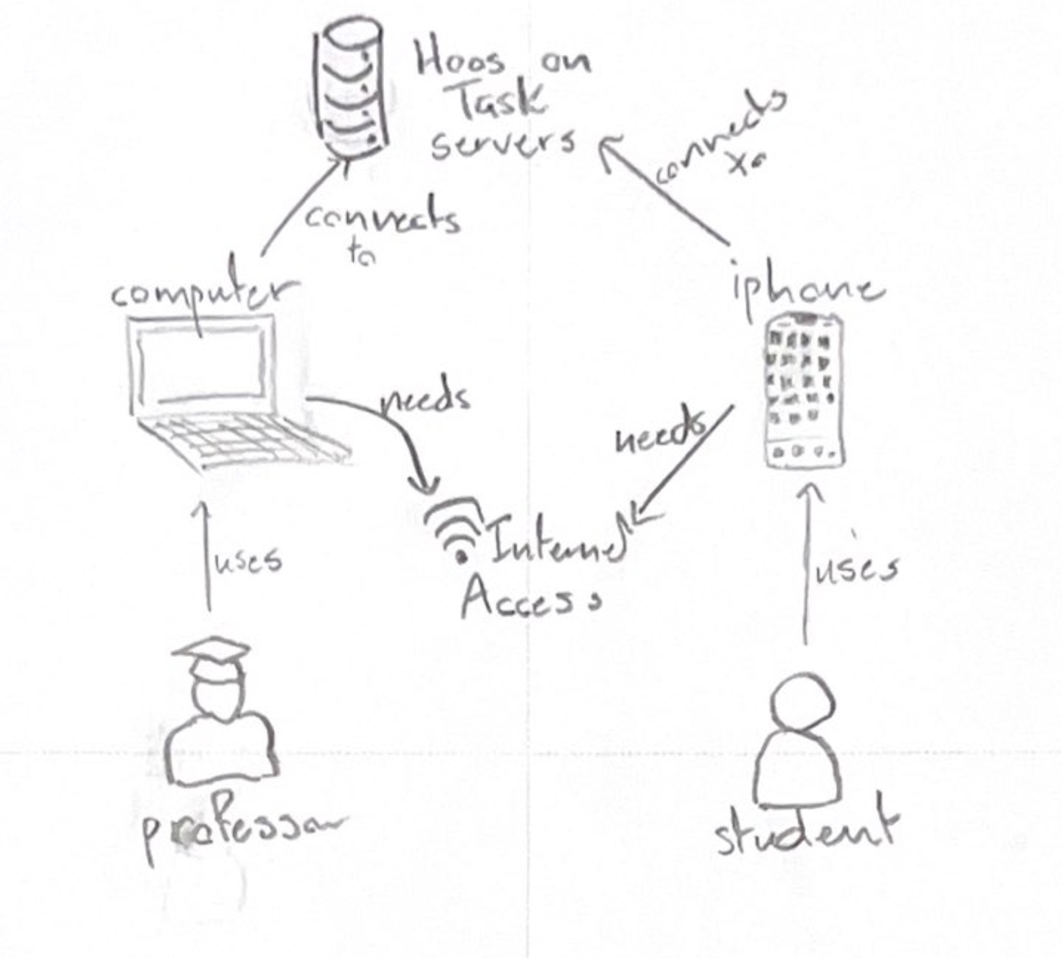 Hoos on
Task
servers
connects
to
connects
to
computer
iphone
needs
needs
Internet
Access
uses
uses
professor
student